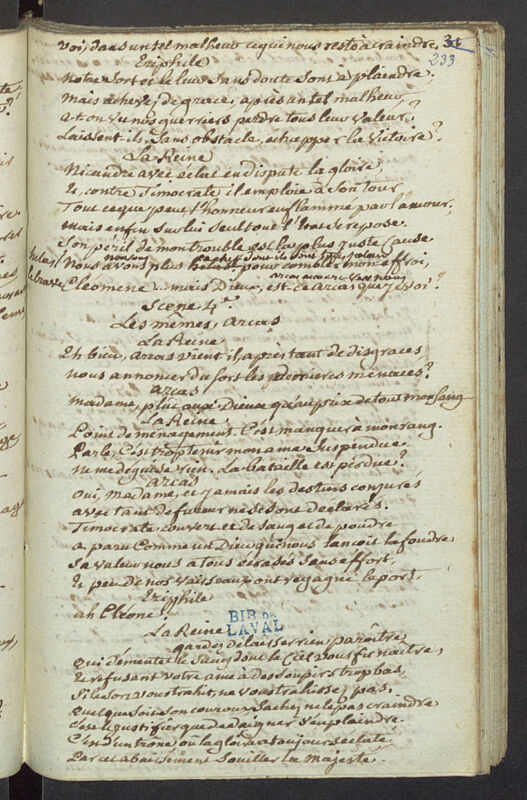 31
233
voi, dans un tel malheur ce qui nous reste à craindre.
Eriphile
Notre sort et le leur sans doute sont à plaindre;
Mais achevez, de grace, après un tel malheur
a-t-on vu nos guerriers perdre tous leur valeur?
Laissent ils, sans obstacle, échapper la victoire?
La Reine
Nicandre avec éclat en dispute la gloire,
Et contre Timocrate il emploie à son tour
Tout ce que peut l'honneur enflammé par l'amour;
Mais enfin sur lui seul tout l'Etat se repose.
Son péril de mon trouble est la plus juste cause
Nous avons plus pour combler mon effroi,
le brave Cleomene.. mais Dieux, est-ce arcas que je voi?
Scene 4e
Les mêmes, arcas
La Reine
Eh bien, arcas vient il, après tant de disgraces
nous annoncer du sort les dernieres menaces?
arcas
Madame, plut aux Dieux qu'au prix de tout mon sang
La Reine
Point de ménagement. C'est manquer à mon rang.
Parle, C'est trop tenir mon ame suspendue.
Ne me déguise rien. La bataille est perdue?
arcas
Oui, Madame, et jamais les destins conjurés
avec tant de fureur ne se sont déclarés.
Timocrate couvert et de sang et de poudre
a paru comme un Dieu qui nous lancoit la foudre
Sa valeur nous a tous écrasés sans effort,
Et peu de nos vaisseaux ont regagné le port.
Eriphile
ah Cléone!
La Reine
BIB DE
LAVAL
gardez de laisser rien paraître
qui démente le sang dont le Ciel vous fit naitre,
Et refusant votre ame à des soupirs trop bas,
Si le sort vous trahit, ne vous trahissez pas.
Quel que soit son courroux sachez ne le pas craindre
c'est le justifier que de daigner s'en plaindre.
C'est d'un trone où la gloire a toujours éclaté
Par cet abaissement souiller la Majesté.